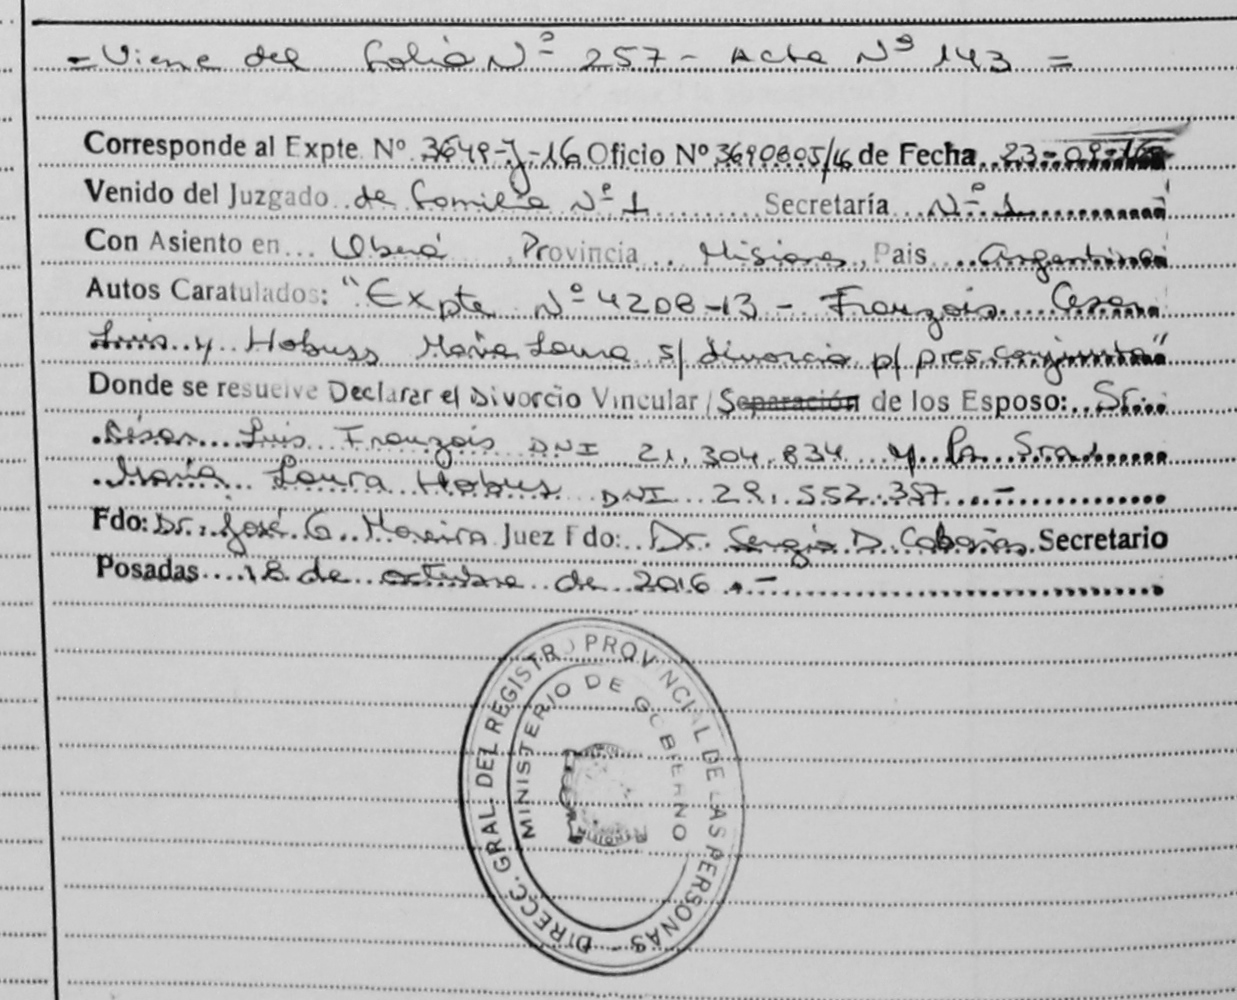 = Viene del Folio Nº 257 - Acta Nº 143 =
Corresponde al Expte. Nº 3649-J-16 Oficio Nº 3690805/16 de Fecha 23-09-16
Venido del Juzgado de Familia Nº 1 Secretaría Nº 1
Con Asiento en Oberá, Provincia Misiones, Pais Argentina
Autos Caratulados: "Expte Nº 4208-13 - Françóis Cesar
Luis y Hobuss María Laura s/ divorcio p/ pres. conjunta"
Donde se resuelve Declarar el Divorcio Vincular / Separación de los Esposo: Sr.
César Luis Françóis DNI 21.304.834 y la Sra.
María Laura Hobus DNI 29.552.357.-
Fdo: Dr. José G. Moreira Juez Fdo: Dr. Sergio D. Cabañas Secretario
Posadas 18 de octubre de 2016.-
DIRECC. GRAL. DEL REGISTRO PROVINCIAL DE LAS PERSONAS -
MINISTERIO DE GOBIERNO
MISIONES